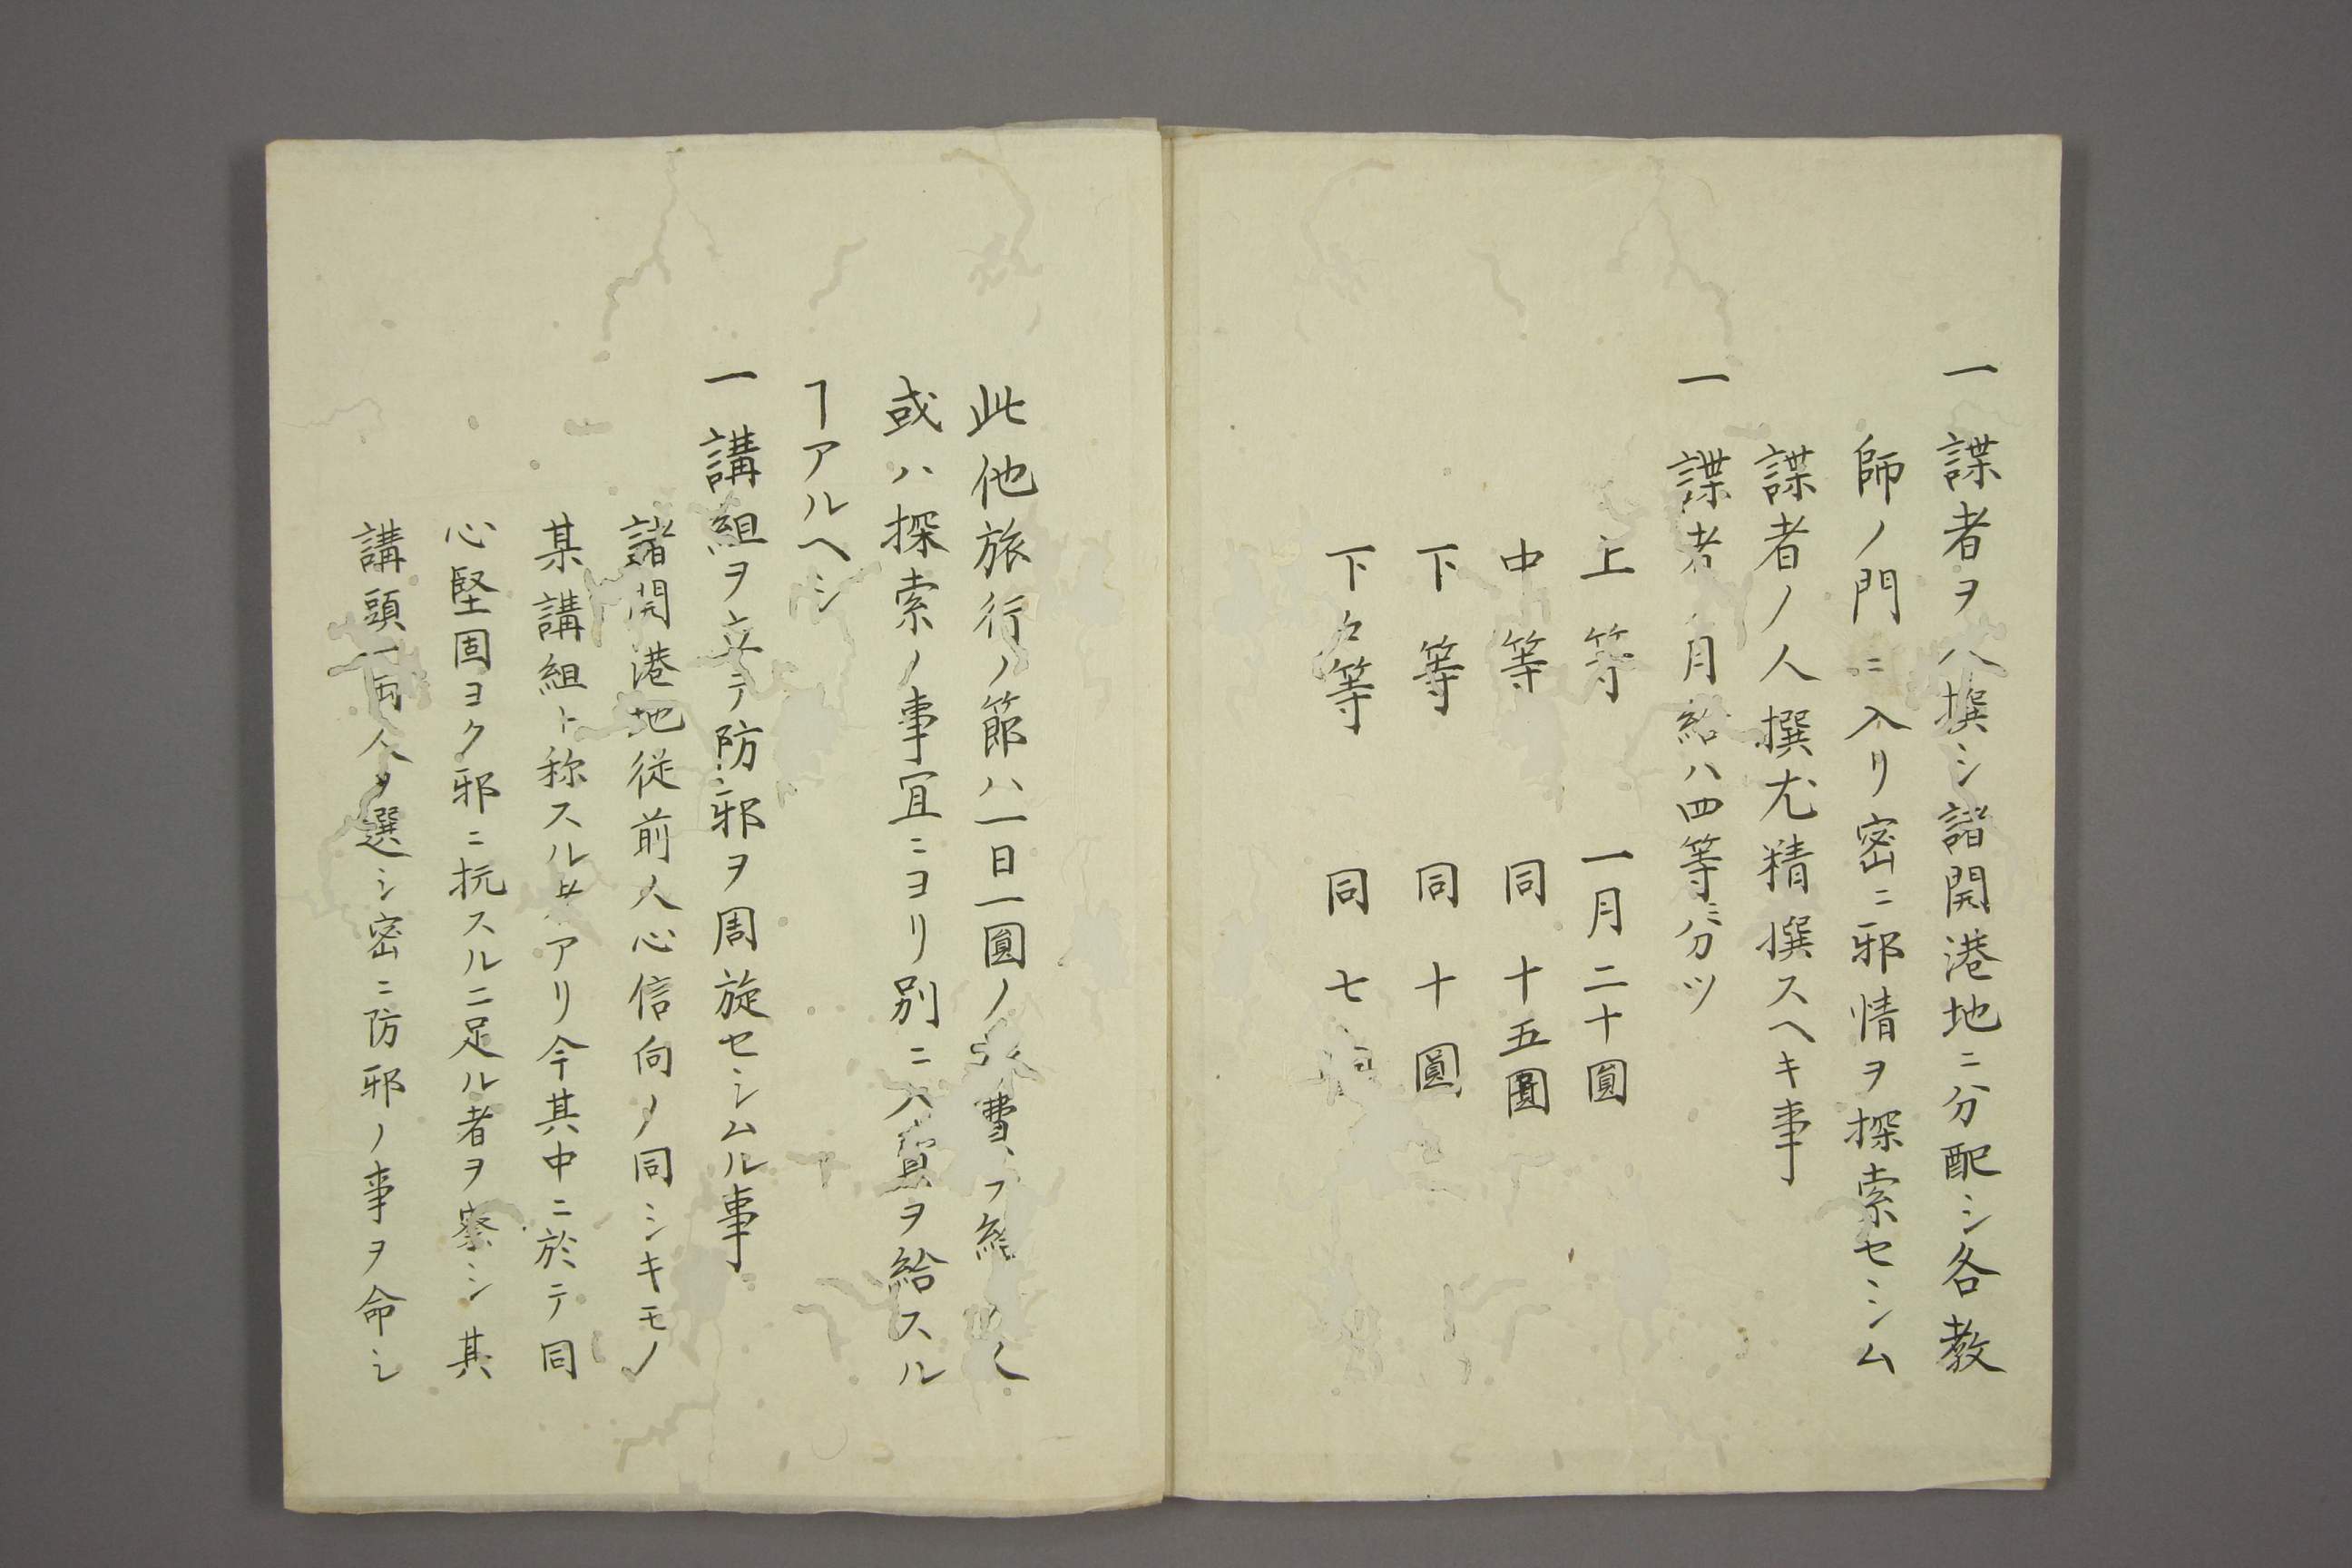 一諜者ヲハ撰シ諸開港地ニ分配シ各教
師ノ門ニ入リ密ニ邪情ヲ探索セシム
諜者ノ人撰尤精撰スヘキ事
一諜者月給ハ四等ニ分ツ
上等 一月二十圓
中等 同十五圓
下等 同十圓
下々等 同七
此他旅行ノ節ハ一日一圓ノ費
或ハ探索ノ事冝ニヨリ別ニ入ヲ給スル
ヿアルヘシ
一講組ヲ立テ防邪ヲ周旋セシムル事
諸開港地従前人心信向ノ同シキモノ
某講組ト称スルアリ今其中ニ於テ同
心堅固ヨク邪ニ抗スルニ足ル者ヲ察シ其
講頭一両人ヲ選シ密ニ防邪ノ事ヲ命シ